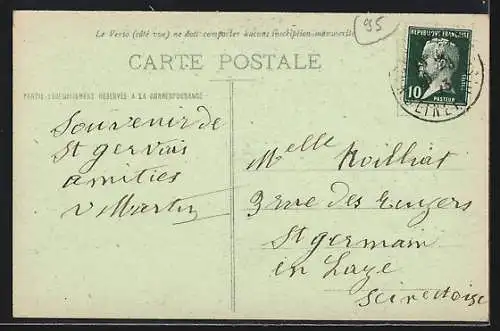 95
Le Verso (côté vue) ne doit comporter aucune inscription manuscrite
CARTE POSTALE
PARTIE EXCLUSIVEMENT RÉSERVÉE A LA CORRESPONDANCE
REPUBLIQUE FRANÇAISE
10
PASTEUR
POSTES
Souvenir de
St gervais
amitiés
V Martin
Melle Noilliat
3 rue des
St germain
en Laye
Seine et oise